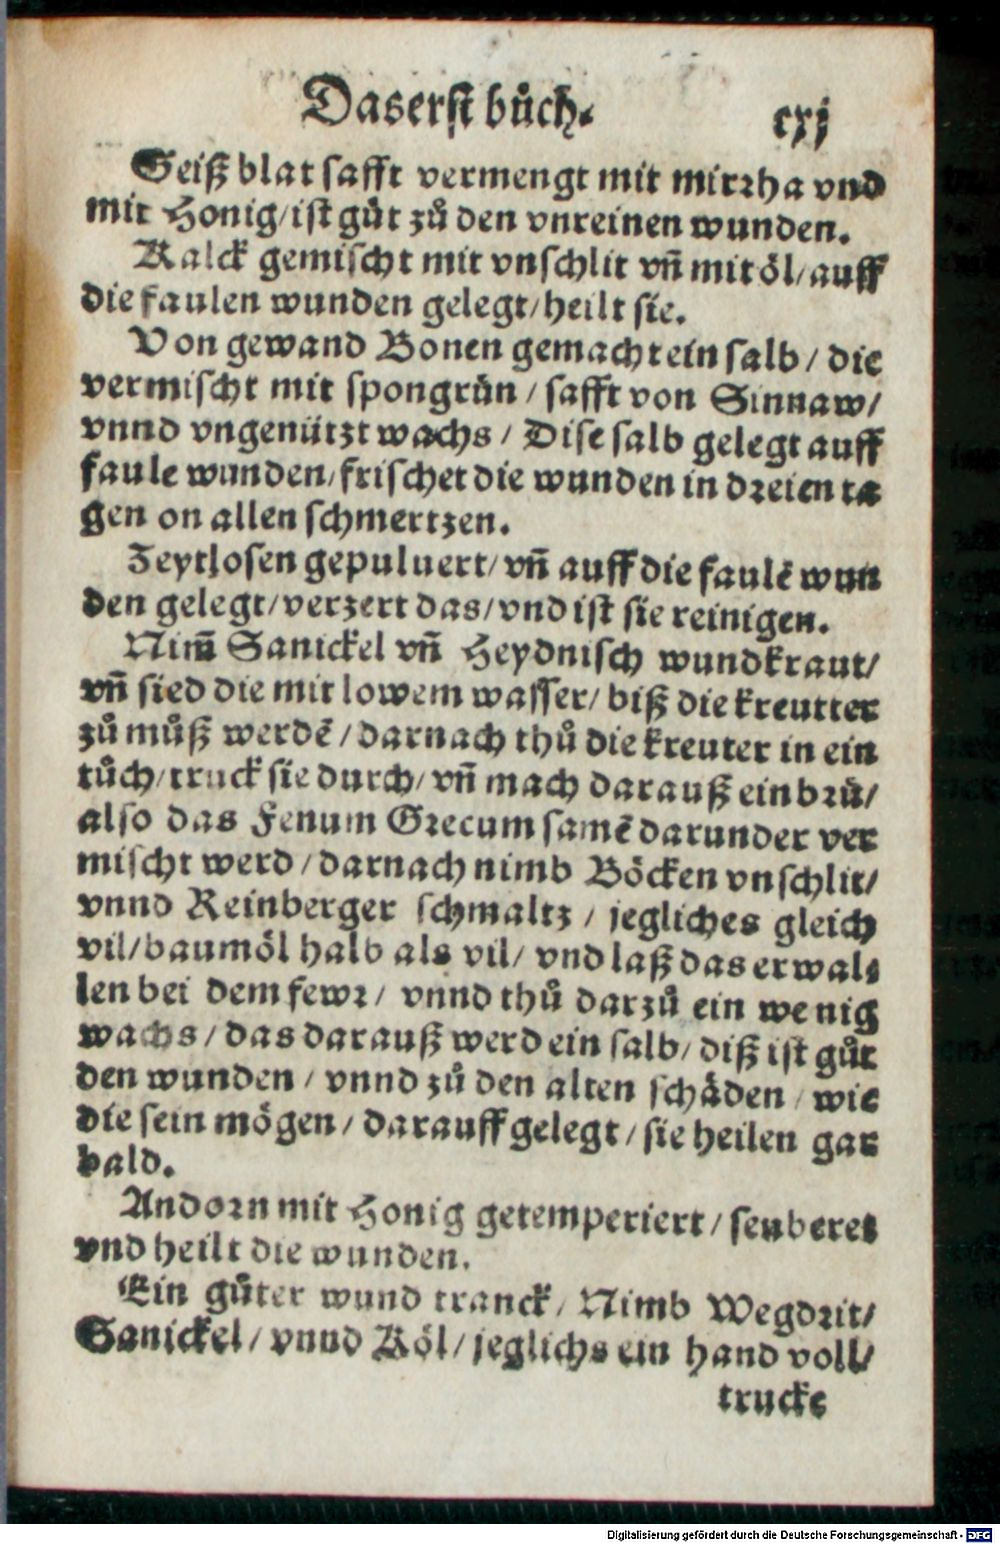 Das erst bůch.
cxj
Geiß blat safft vermengt mit mirrha vnd
mit Honig/ist gůt zů den vnreinen wunden.
Kalck gemischt mit vnschlit vñ mit öl/auff
die faulen wunden gelegt/heilt sie.
Von gewand Bonen gemacht ein salb/die
vermischt mit spongrün/safft von Sinnaw/
vnnd vngenützt wachs/Dise salb gelegt auff
faule wunden/frischet die wunden in dreien ta
gen on allen schmertzen.
Zeytlosen gepuluert/vñ auff die faulẽ wun
den gelegt/verzert das/vnd ist sie reinigen.
Nim̃ Sanickel vñ Heydnisch wundkraut/
vñ sied die mit lowem wasser/biß die kreutter
zů můß werdẽ/darnach thů die kreuter in ein
tůch/truck sie durch/vñ mach darauß ein brů/
also das Fenum Grecum samẽ darunder ver
mischt werd/darnach nimb Böcken vnschlit/
vnnd Reinberger schmaltz/jegliches gleich
vil/baumöl halb als vil/vnd laß das erwal⸗
len bei dem fewr/vnnd thů darzů ein wenig
wachs/das darauß werd ein salb/diß ist gůt
den wunden/vnnd zů den alten schäden/wie
die sein mögen/darauff gelegt/sie heilen gar
bald.
Andorn mit Honig getemperiert/seuberet
vnd heilt die wunden.
Ein gůter wund tranck/Nimb Wegdrit/
Sanickel/vnnd Köl/jeglichs ein hand voll/
trucke
Digitalisierung gefördert durch die Deutsche Forschungsgemeinschaft - DFG